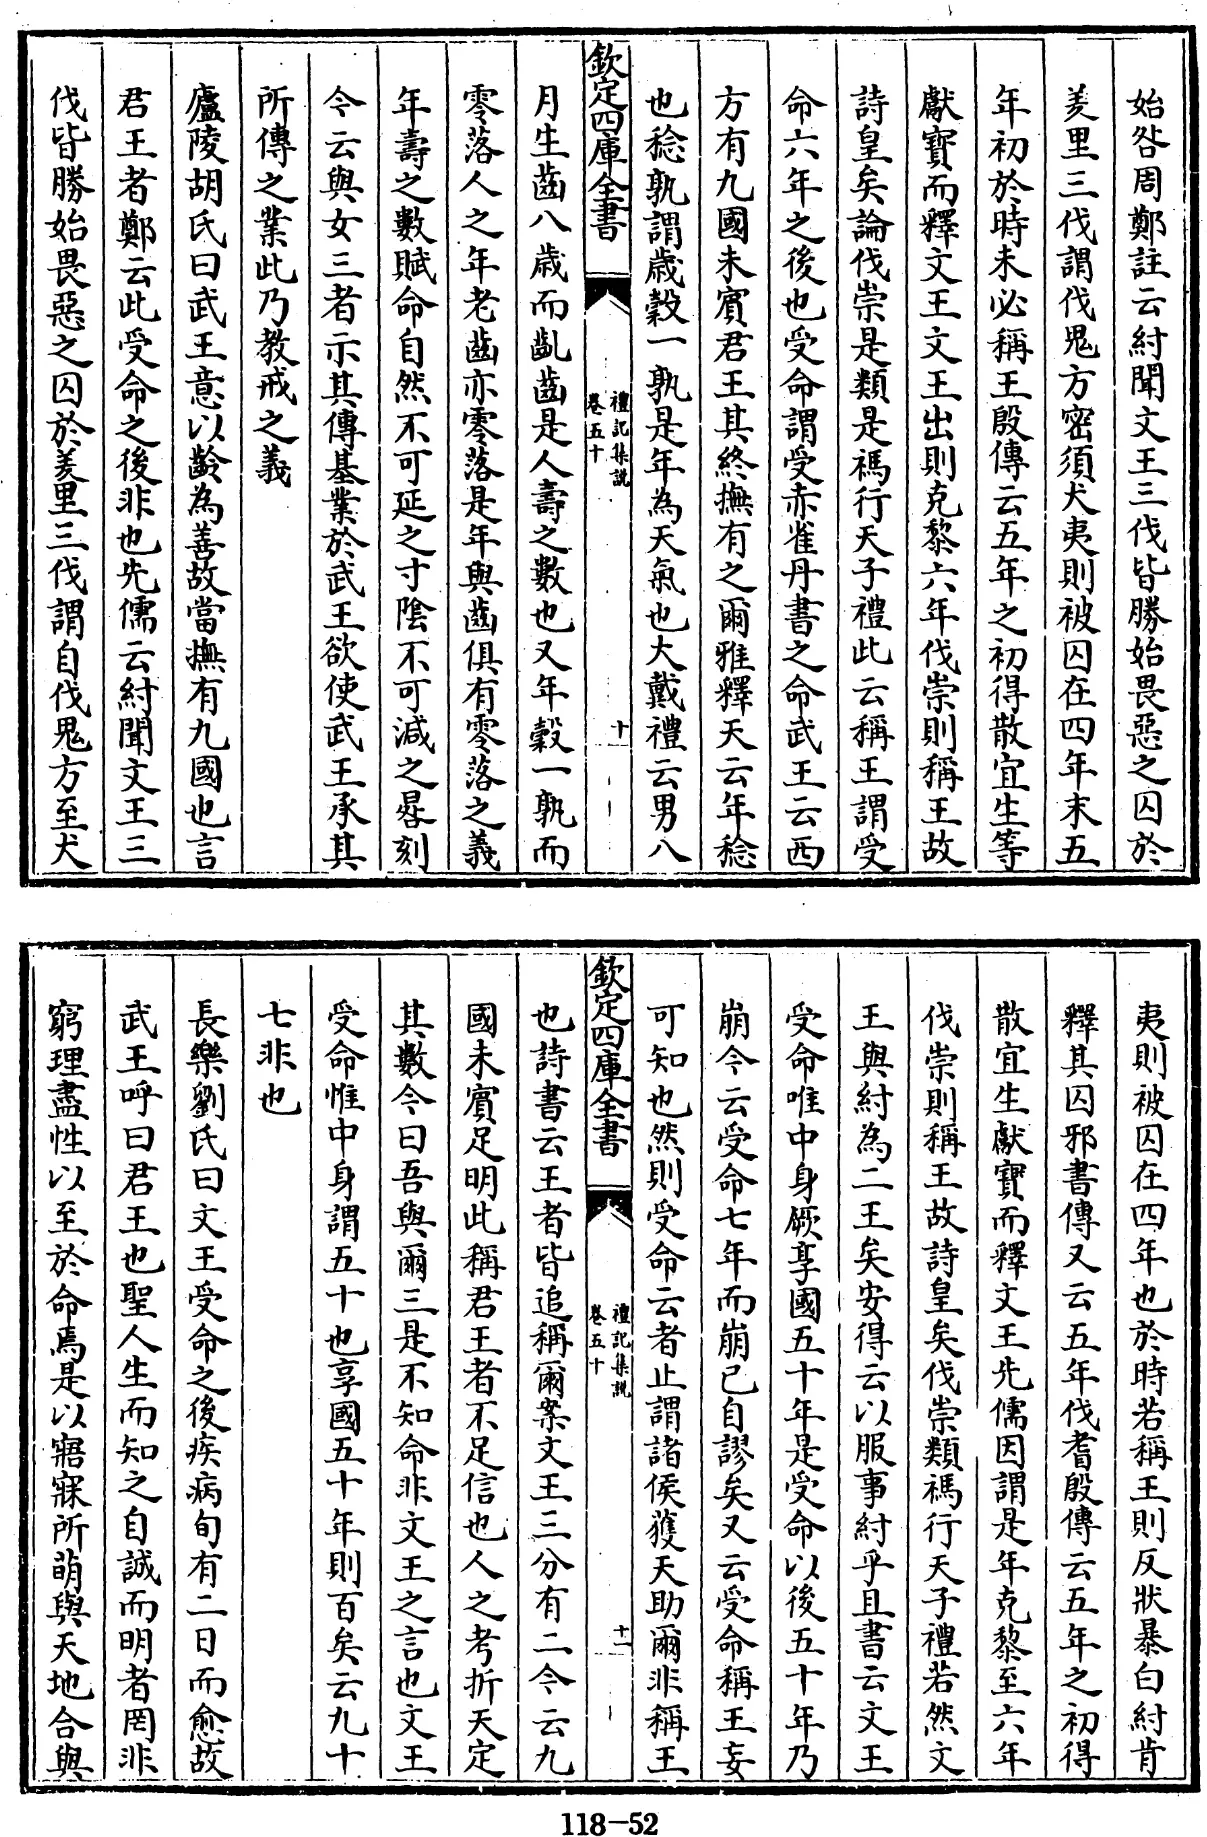 始咎周鄭註云紂聞文王三伐皆勝始畏惡之囚於
羑里三代謂伐鬼方密須犬夷則被囚在四年末五
年初於時未必稱王殷傳云五年之初得散宜生等
獻寳而釋文王文王出則克黎六年伐崇則稱王故
詩皇矣論伐崇是類是禡行天子禮此云稱王謂受
命六年之後也受命謂受赤雀丹書之命武王云西
方有九國未賓君王其終撫有之爾雅釋天云年稔
也稔孰謂歲穀一孰是年為天氣也大戴禮云男八
欽定四庫全書
禮記集說
卷五十
十
月生齒八歲而齓齒是人壽之數也又年穀一孰而
零落人之年老齒亦零落是年與齒俱有零落之義
年壽之數賦命自然不可延之寸陰不可減之晷刻
今云與女三者示其傳基業於武王欲使武王承其
所傳之業此乃教戒之義
廬陵胡氏曰武王意以齡為善故當撫有九國也言
君王者鄭云此受命之後非也先儒云紂聞文王三
伐皆勝始畏惡之囚於羑里三伐謂自伐鬼方至犬
夷則被囚在四年也於時若稱王則反狀暴白紂肯
釋其囚邪書傳又云五年伐耆殷傳云五年之初得
散宜生獻寳而釋文王先儒因謂是年克黎至六年
伐崇則稱王故詩皇矣伐崇類禡行天子禮若然文
王與紂為二王矣安得云以服事紂乎且書云文王
受命唯中身厥享國五十年是受命以後五十年乃
崩今云受命七年而崩已自謬矣又云受命稱王妄
可知也然則受命云者止謂諸侯獲天助爾非稱王
欽定四庫全書
禮記集說
卷五十
十一
也詩書云王者皆追稱爾案文王三分有二今云九
國未賓足明此稱君王者不足信也人之考折天定
其數今曰吾與爾三是不知命非文王之言也文王
受命惟中身謂五十也享國五十年則百矣云九十
七非也
長樂劉氏曰文王受命之後疾病旬有二日而愈故
武王呼曰君王也聖人生而知之自誠而明者罔非
窮理盡性以至於命焉是以寤寐所萌與天地合與
118-52